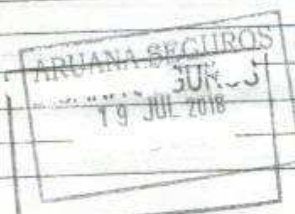 ARUANA SEGUROS
19 JUL 2018